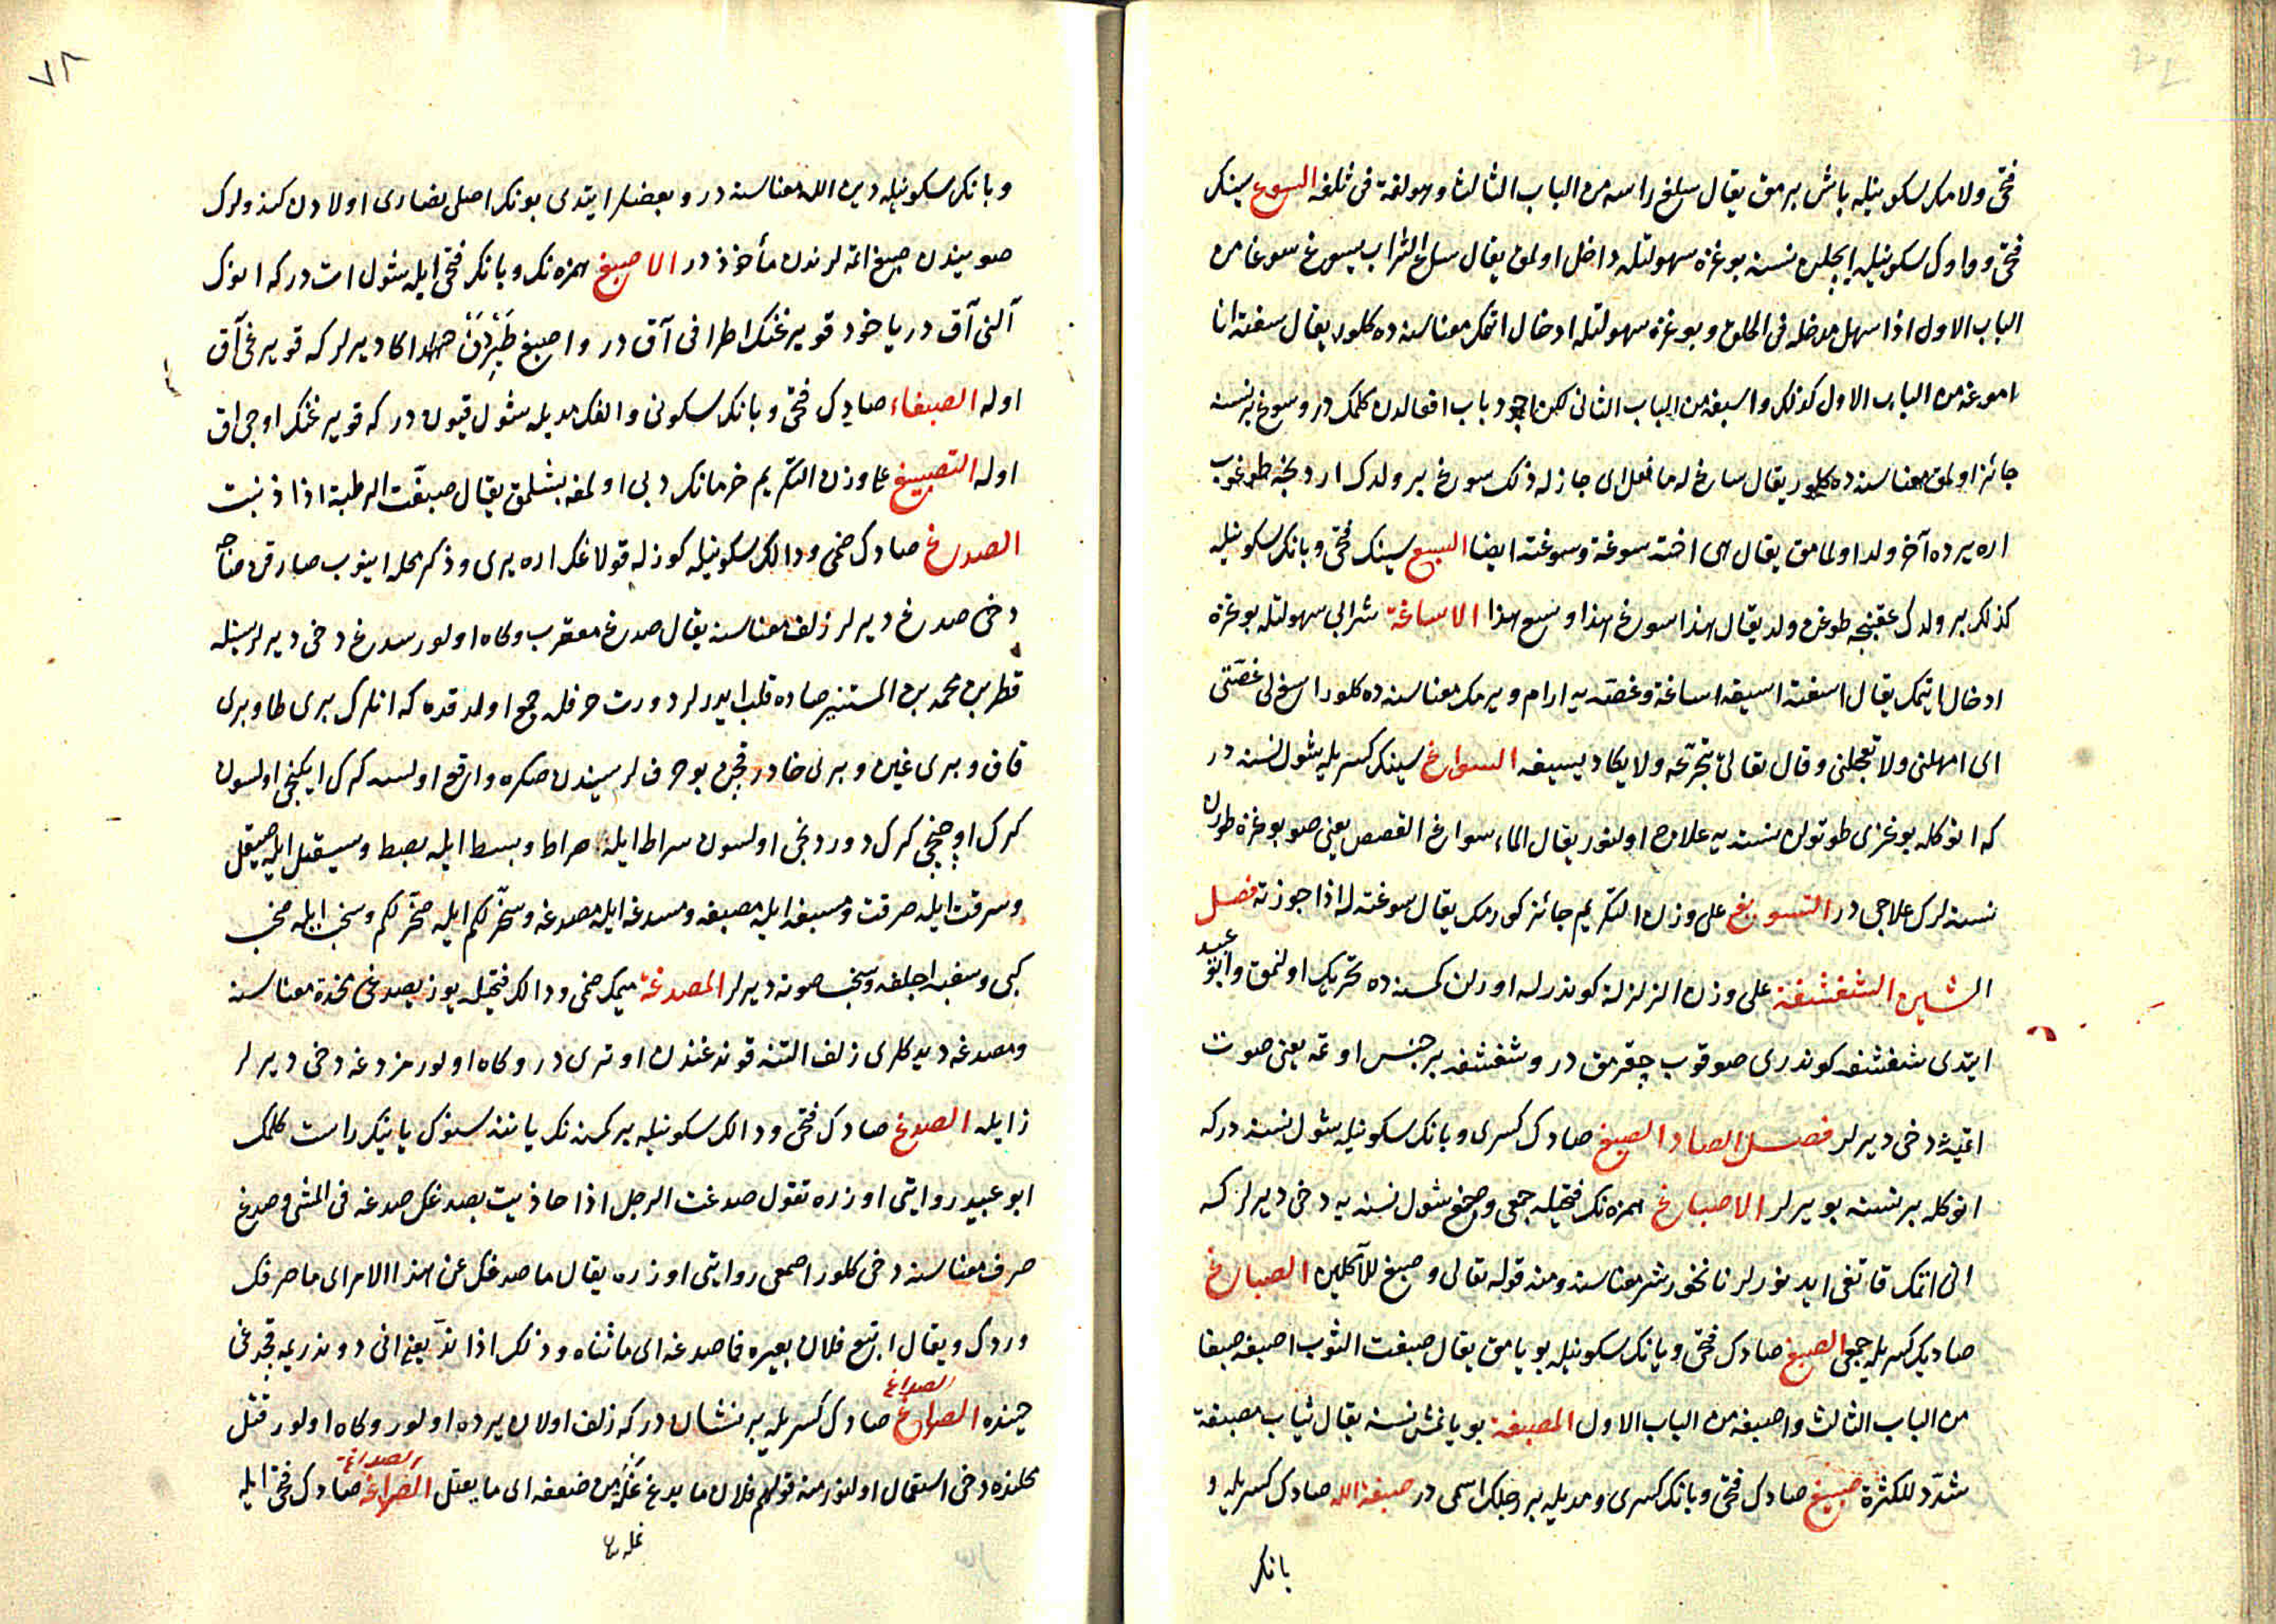 فتحى ولامك سكونيله باش يرمق يقال سلغ راسه من الباب الثالث وهولغة فى ثلغه السوغ سينك
فتحى وواوك سكونيله ايچلن نسنه بوغزه سهولتله داخل اولمق يقال ساغ الشراب يسوغ سوغا من
الباب الاول اذا سهل مدخله فى الحلق وبوغزه سهولتله ادخال اتمك معناسنه ده كلور يقال سغته انا
اسوغه من الباب الاول كذلك واسيغه من الباب الثانى لكن اجود باب افعالدن كلمكدر وسوغ بر نسنه
جائز اولمق معناسنه ده كلور يقال ساغ له ما فعل اى جاز له ذلك سوغ بر ولدك اردنجه طوغوب
اره يرده آخر ولد اولمامق يقال هى اخته سوغة وسوغته ايضا السيغ سينك فتحى ويانك سكونيله
كذلك بر ولدك عقبنجه طوغن ولد يقال هذا سوغ هذا وسيغ هذا الاساغة شرابى سهولتله بوغزه
ادخال ايتمك يقال اسغته اسيغه اساغة وغصه يه ارام ويرمك معناسنه ده كلور اسغ لى غصتى
اى امهلنى ولا تعجلنى وقال تعالى يتجرعه ولا يكاد يسيغه السواغ سينك كسريله شول نسنه در
كه انوكله بوغزى طوتولن نسنه يه علاج اولنور يقال الماء سواغ الغصص يعنى صو بوغزه طورن
نسنه لرك علاجى در التسويغ على وزن التكريم جائز كورمك يقال سوغته له اذا جوزته فصل
الشين الشغشغة على وزن الزلزلة كوندرله اورلن كمسنه ده تحريك اولنمق وابو عبيد
ايتدى شغشغه كوندرى صوقوب چقرمق در وشغشغه بر جنس اوتمه يعنى صوت
اتمیه دخى ديرلر فصل الصاد الصبغ صادك كسرى وبانك سكونيله شول نسنه دركه
انوكله بر نسنه بويرلر الاصباغ همزه نك فتحيله جمعى وصبغ شول نسنه يه دخى ديرلر كه
انى اتمك قاتغى ايدنورلر نانخورش معناسنه ومنه قوله تعالى وصبغ للآكلين الصباغ
صادك كسريله جمعى الصبغ صادك فتحى وبانك سكونيله بويامق يقال صبغت الثوب اصبغه صبغا
من الباب الثالث واصبغه من الباب الاول المصبغة بويانمش نسنه يقال ثياب مصبغة
شدد للكثرة صبيغ صادك فتحى وبانك كسرى ومديله بر رجلك اسمى در صبغة الله صادك كسريله و
بانك
٧٨
وبانك سكونيله دين الله معناسنه در وبعضلر ايتدى بونك اصلى نصارى اولادن كندولرك
صوينده صبغ اتمه لرندن مأخوذ در الاصبغ همزه نك وبانك فتحى ايله شول ات دركه انوك
آلنى آق در ياخود قويرغنك اطرافى آق در واصبغ طيردن اكا ديرلر كه قويرغى آق
اوله الصبغاء صادك فتحى وبانك سكونى والفك مديله شول قيون دركه قويرغنك اوجى اق
اوله التصبيغ على وزن التكريم خرمانك دبى اولمغه بشلمق يقال صبغت الرطبة اذا ذنبت
الصدغ صادك ضمى ودالك سكونيله كوزله قولاغك اره يرى وذكر محله اينوب صارقن صاچه
دخى صدغ ديرلر زلف معناسنه يقال صدغ معقرب وكاه اولور سدغ دخى ديرلر سينله
قطرب محمد بن المستنير صاده قلب ايدرلر دورت حرفله جمع اولدقده كه انلرك برى طا وبرى
قاف وبرى غين وبرى خا در قچن بو حرفلر سيندن صكره واقع اولسه كرك ايكنجى اولسون
كرك اوچنجى كرك دوردنجى اولسون سراط ايله صراط وبسط ايله بصط وسيقل ايله صيقل
وسرقت ايله صرقت ومسبغه ايله مصبغه ومسدغه ايله مصدغه وسخر لكم ايله صخر لكم وسخب ايله صخب
كبى وسغب اجلغه وسخب صوته ديرلر المصدغة ميمك ضمى ودالك فتحيله يوز يصدغى مخدة معناسنه
ومصدغه ديدكلرى زلف التنه قوندغندن اوترى در وكاه اولور مزدغه دخى ديرلر
زايله الصدغ صادك فتحى ودالك سكونيله بر كمسنه نك ياننه سنوك يانك راست كلمك
ابو عبيد روايتى اوزره تقول صدغت الرجل اذا حاذيت بصدغك صدغه فى المشى وصدغ
صرف معناسنه دخى كلور اصمعى روايتى اوزره يقال ما صدغك عن هذا الامر اى ما صرفك
وردك ويقال اتبع فلان بعيره فما صدغه اى ما ثناه وذلك اذا ند يعنى انى دوندريمه قچدغى
حينده الصداغ صادك كسريله بر نشان دركه زلف اولان يرده اولور وكاه اولور قتل
الصداغ
محلنده دخى استعمال اولنور منه قولهم فلان ما يصدغ نملة من ضعفه اى ما يقتل الصداغة صادك فتحى ايله
الصداغة
نملة